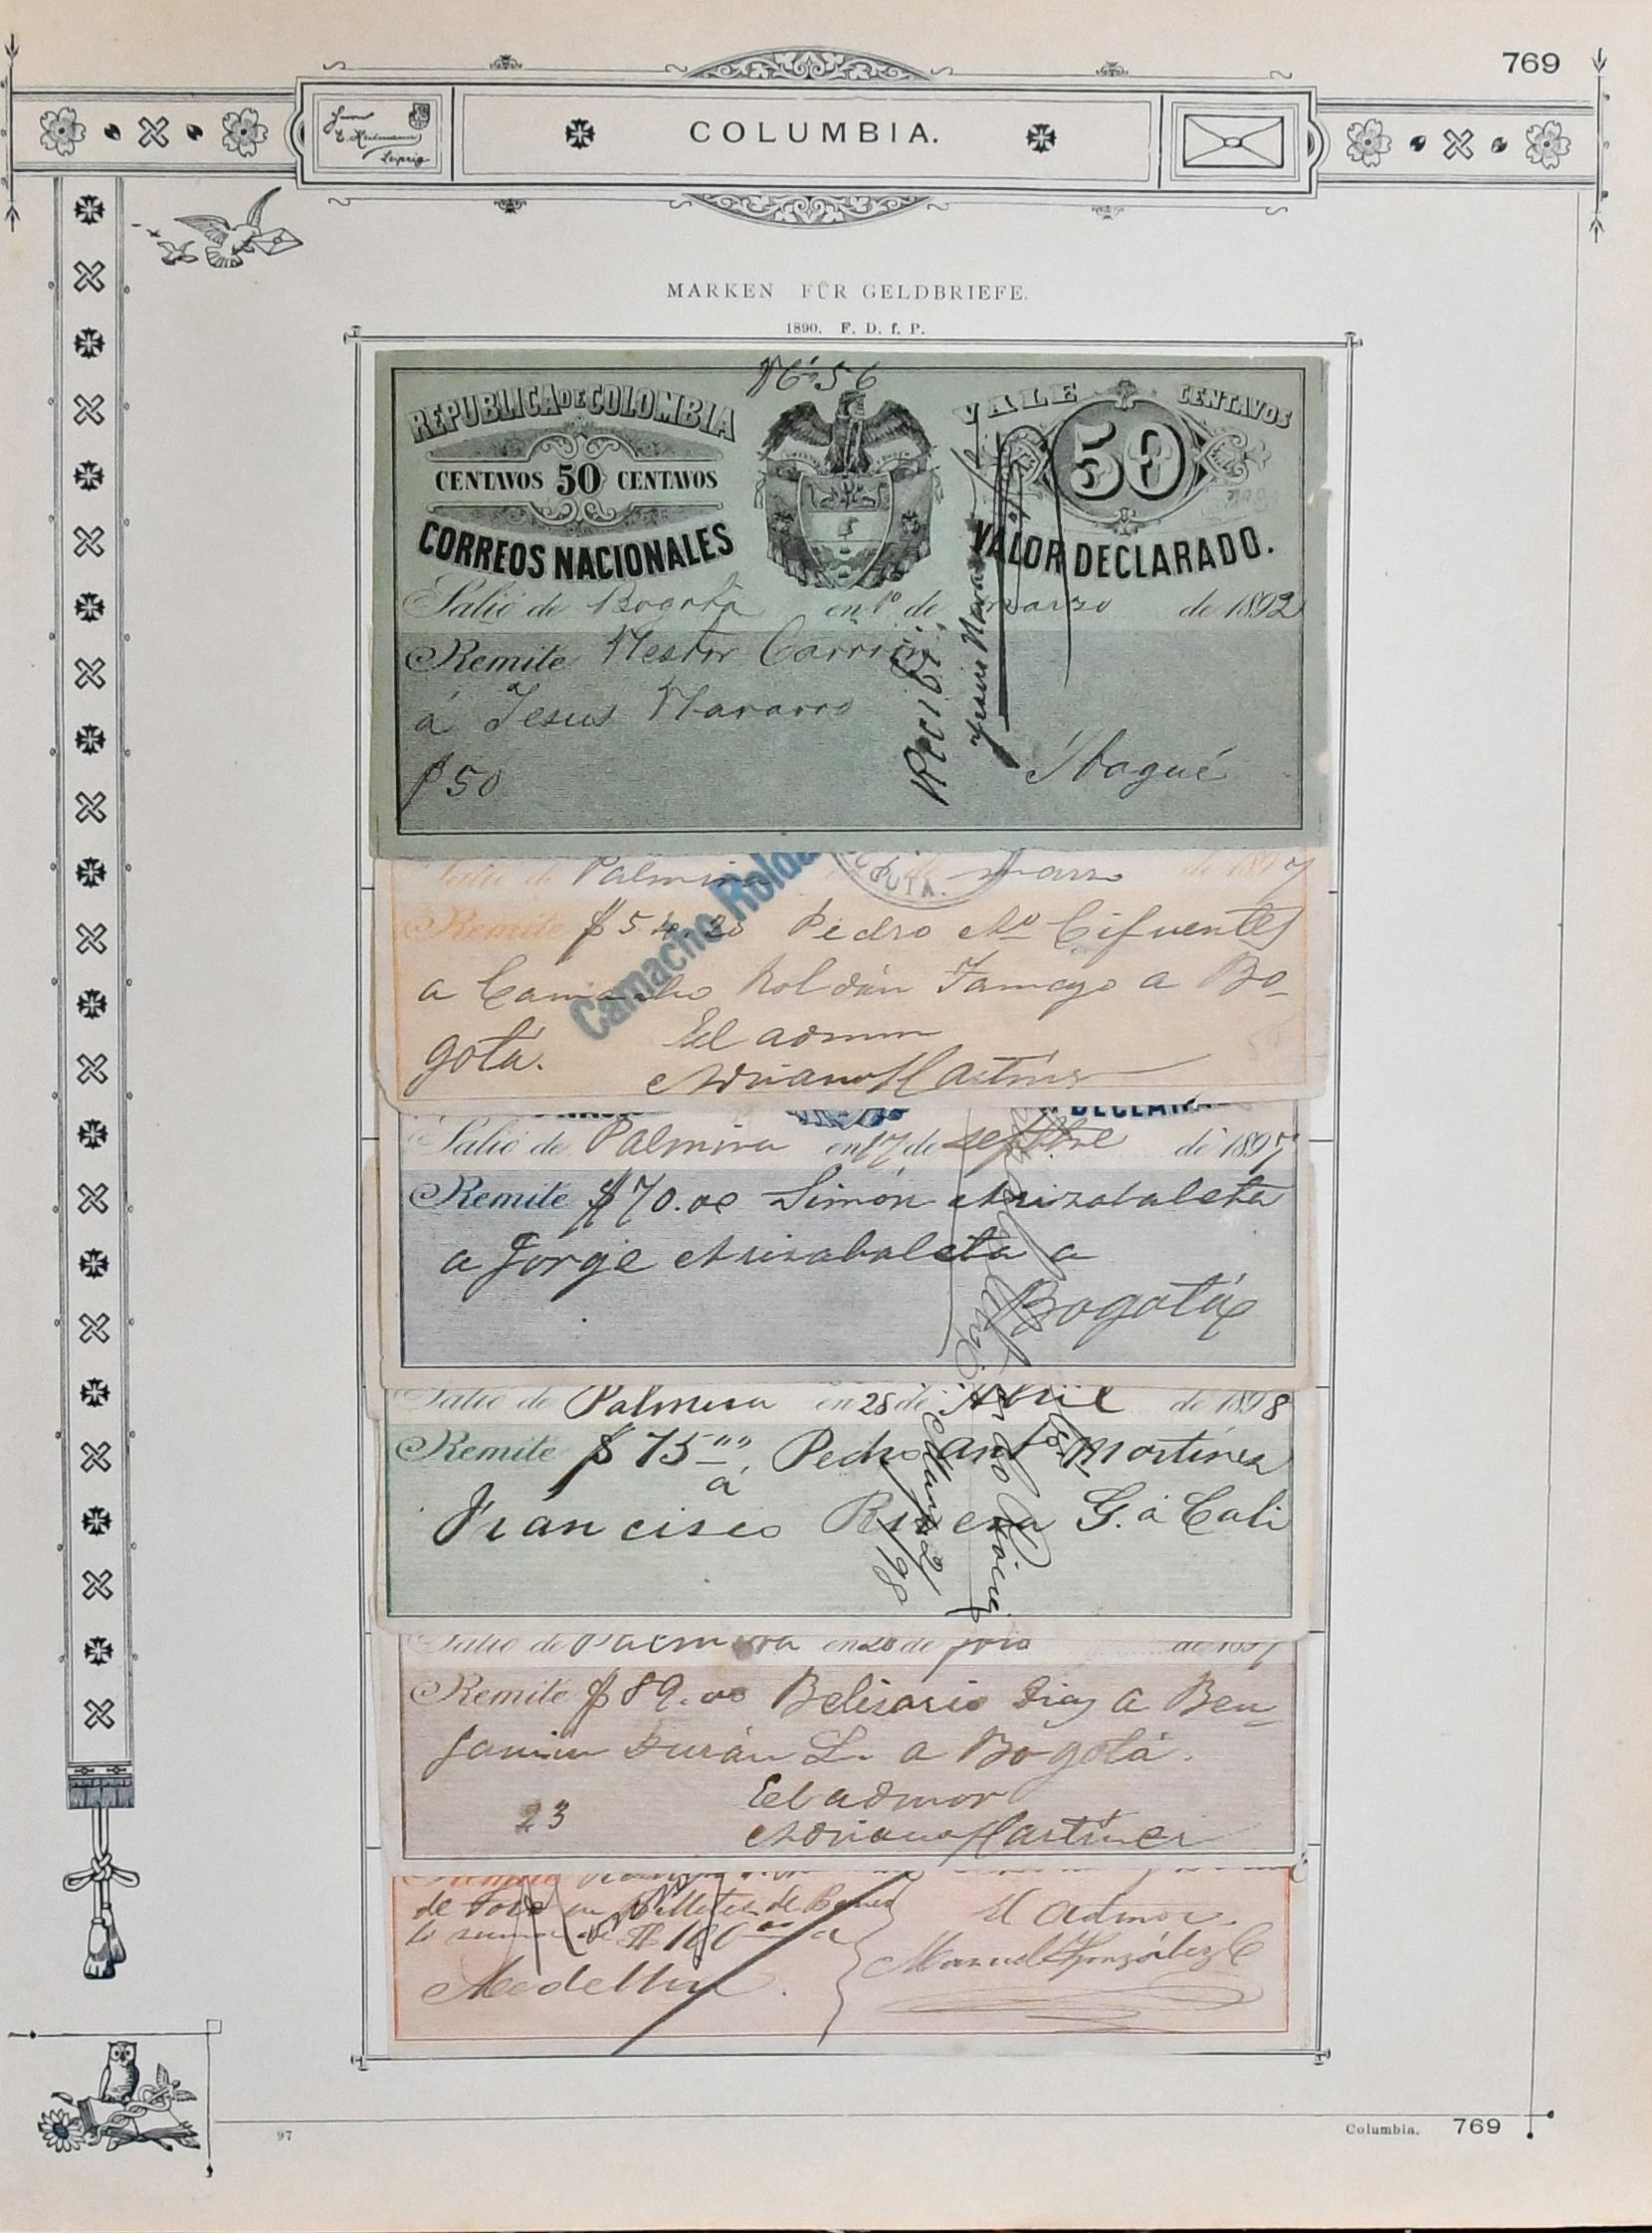 769
Herrn
Leipzig
COLUMBIA.
MARKEN FÜR GELDBRIEFE.
1890. F. D. f. P.
No 56
REPUBLICA DE COLOMBIA
CENTAVOS 50 CENTAVOS
CORREOS NACIONALES
VALE 50 CENTAVOS
VALOR DECLARADO.
Salió de Bogotá en 1º de marzo de 1892
Remite Nestor Carrión
á Jesus Navarro
$50 Ibagué
Recibí
Jesus Navarro
Salió de Palmira de marzo de 1897
Remite $54.20 Pedro Mª Cifuentes
a Camacho Roldán Tamayo a Bo-
gotá. El admor
Adriano Martínez
Camacho Roldá
DECLARA
Salió de Palmira en 17 de septbre de 1897
Remite $70.00 Simón Arizabaleta
a Jorge Arizabaleta a
Bogotá
Salió de Palmira en 28 de Abril de 1898
Remite $ 75 Pedro Antº Martínez
á
Francisco Rivera G. á Cali
Salió de Palmira en 20 de de 1897
Remite $89.00 Belisario Diaz a Ben-
jamin Durán L. a Bogotá.
El admor
23 Adriano Martínez
Remite
de en Billetes de Banco
la suma de $ 100 a El Admor.
Medellín. Manuel González C
97
Columbia. 769